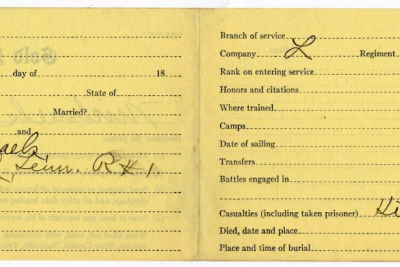 day of 18
State of
Married?
and
Tenn. R # 1.
Branch of service
Company L Regiment
Rank on entering service
Honors and citations
Where trained
Camps
Date of sailing
Transfers
Battles engaged in
Casualties (including taken prisoner)
Died, date and place
Place and time of burial